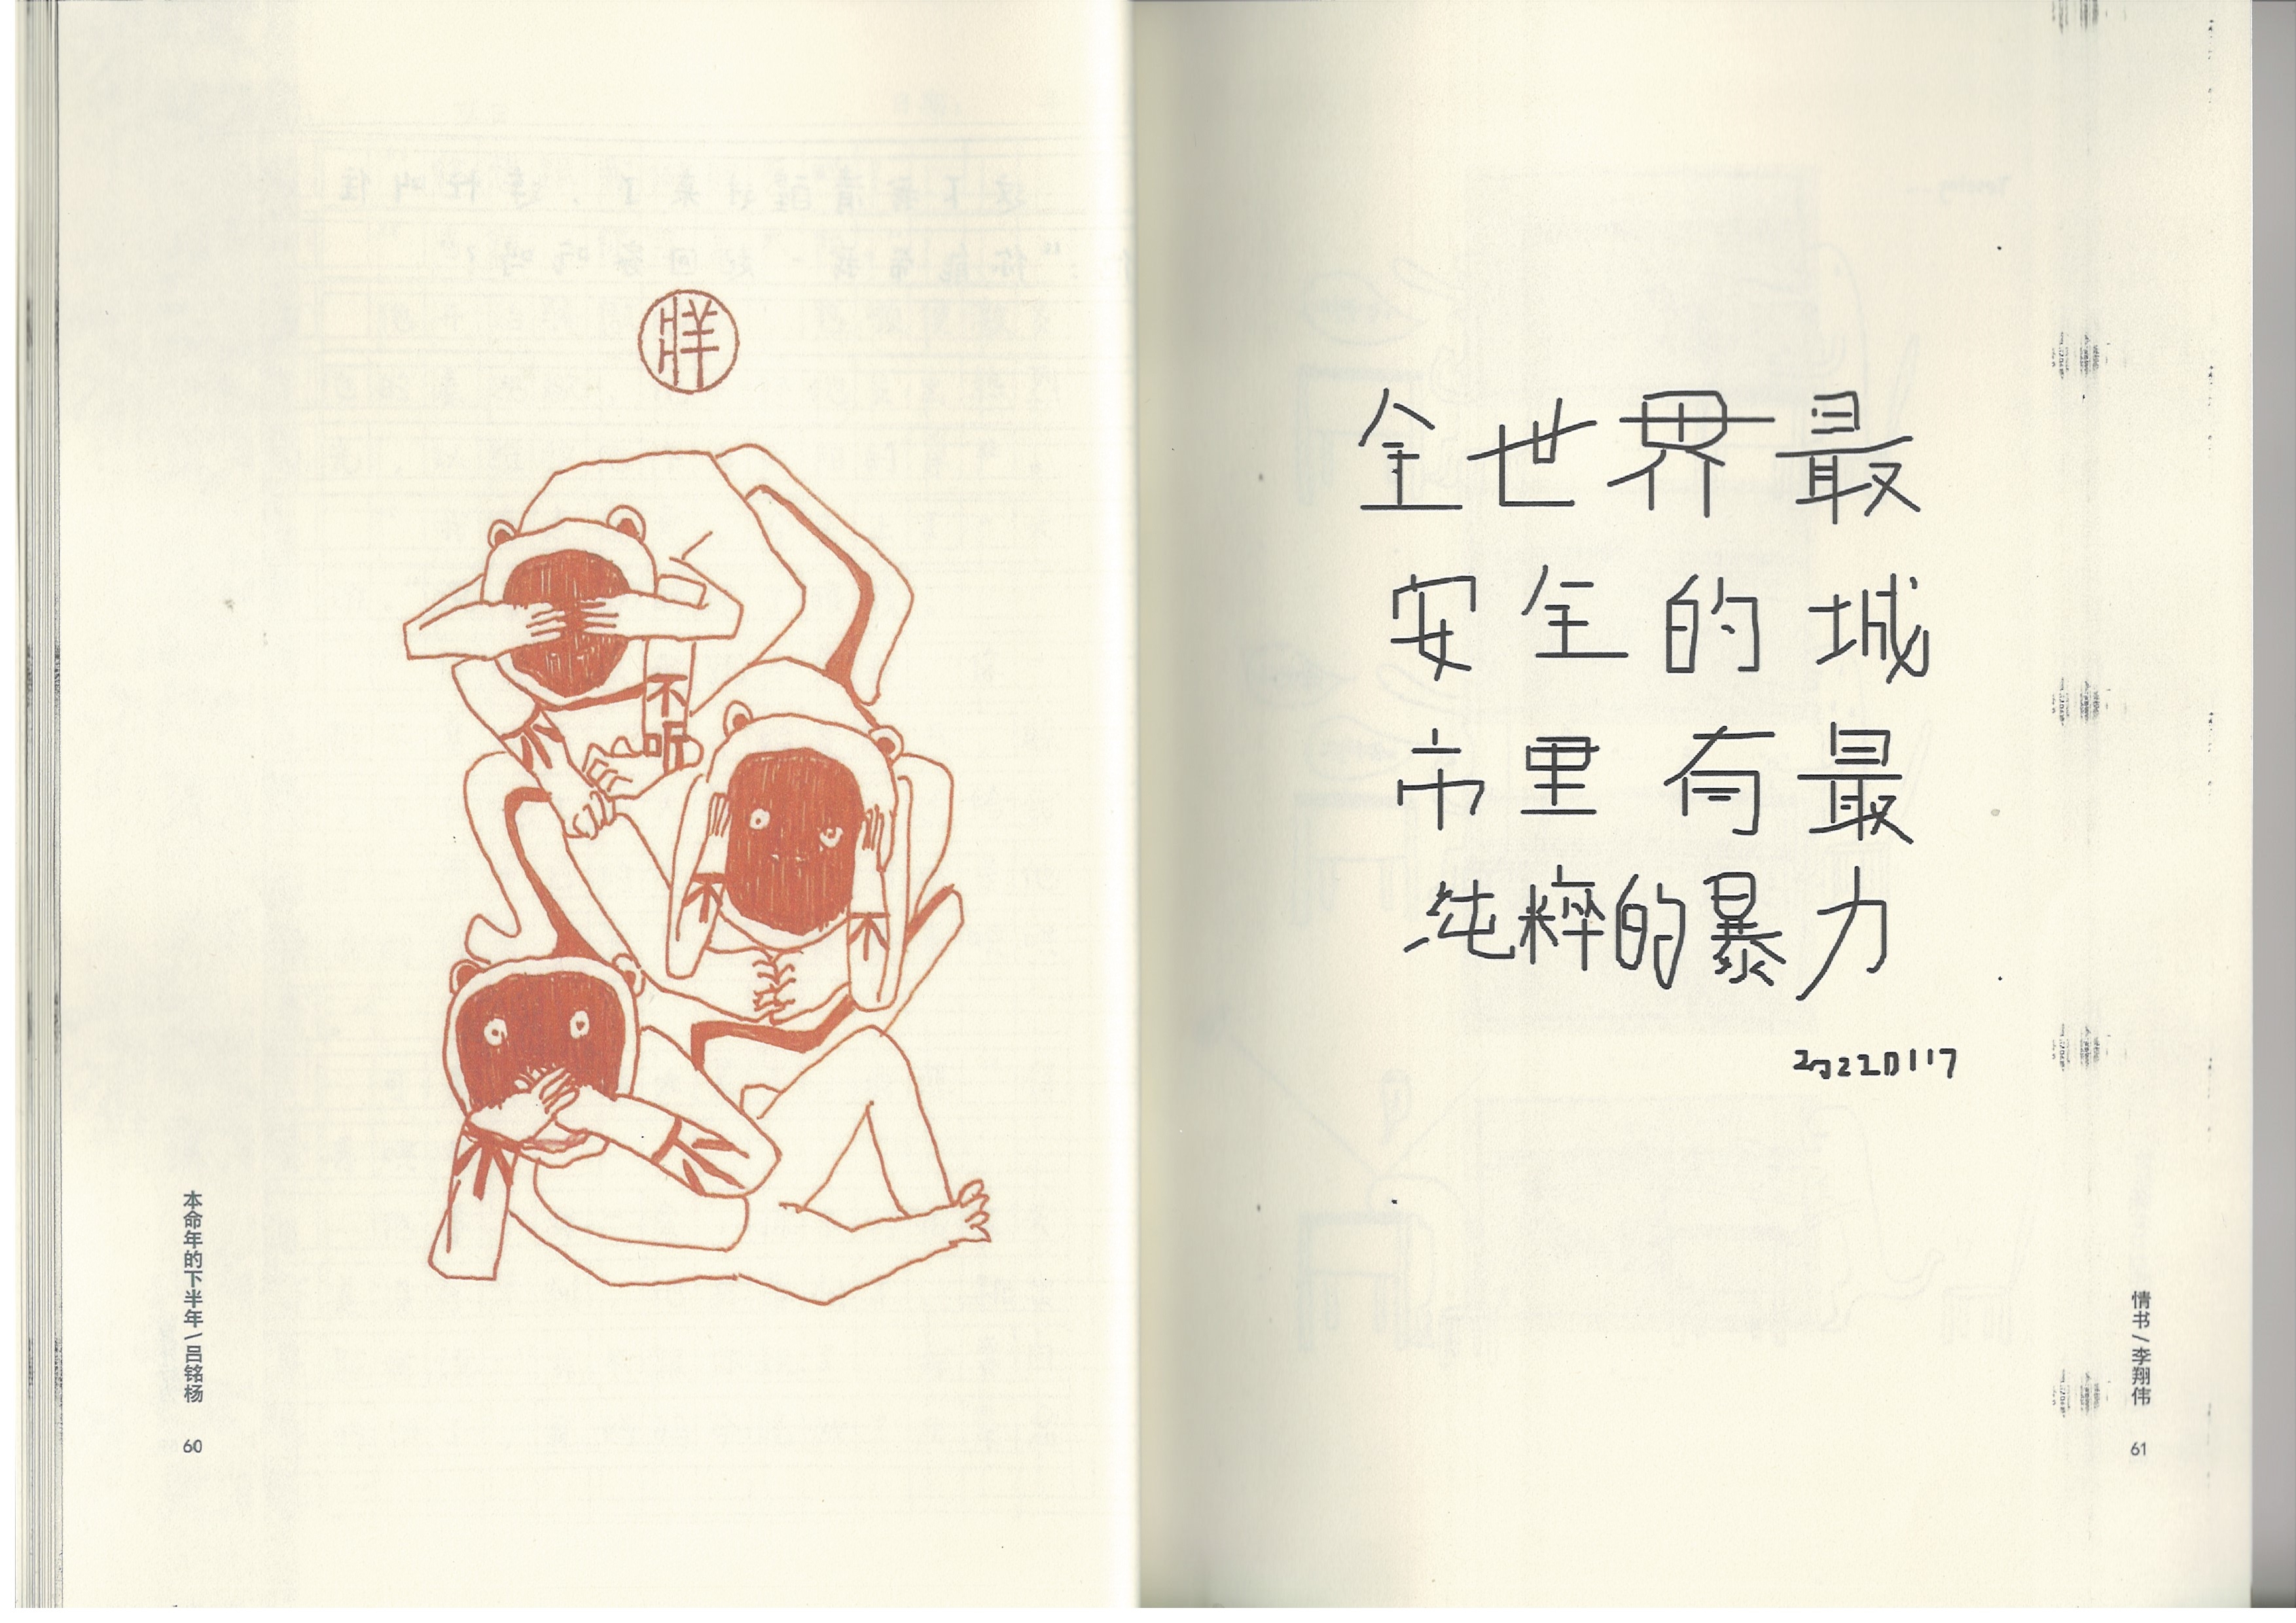 不
听
不
不
本命年的下半年/吕铭杨
60
全世界最
安全的城
市里有最
纯粹的暴力
20220117
情书/李翔伟
61